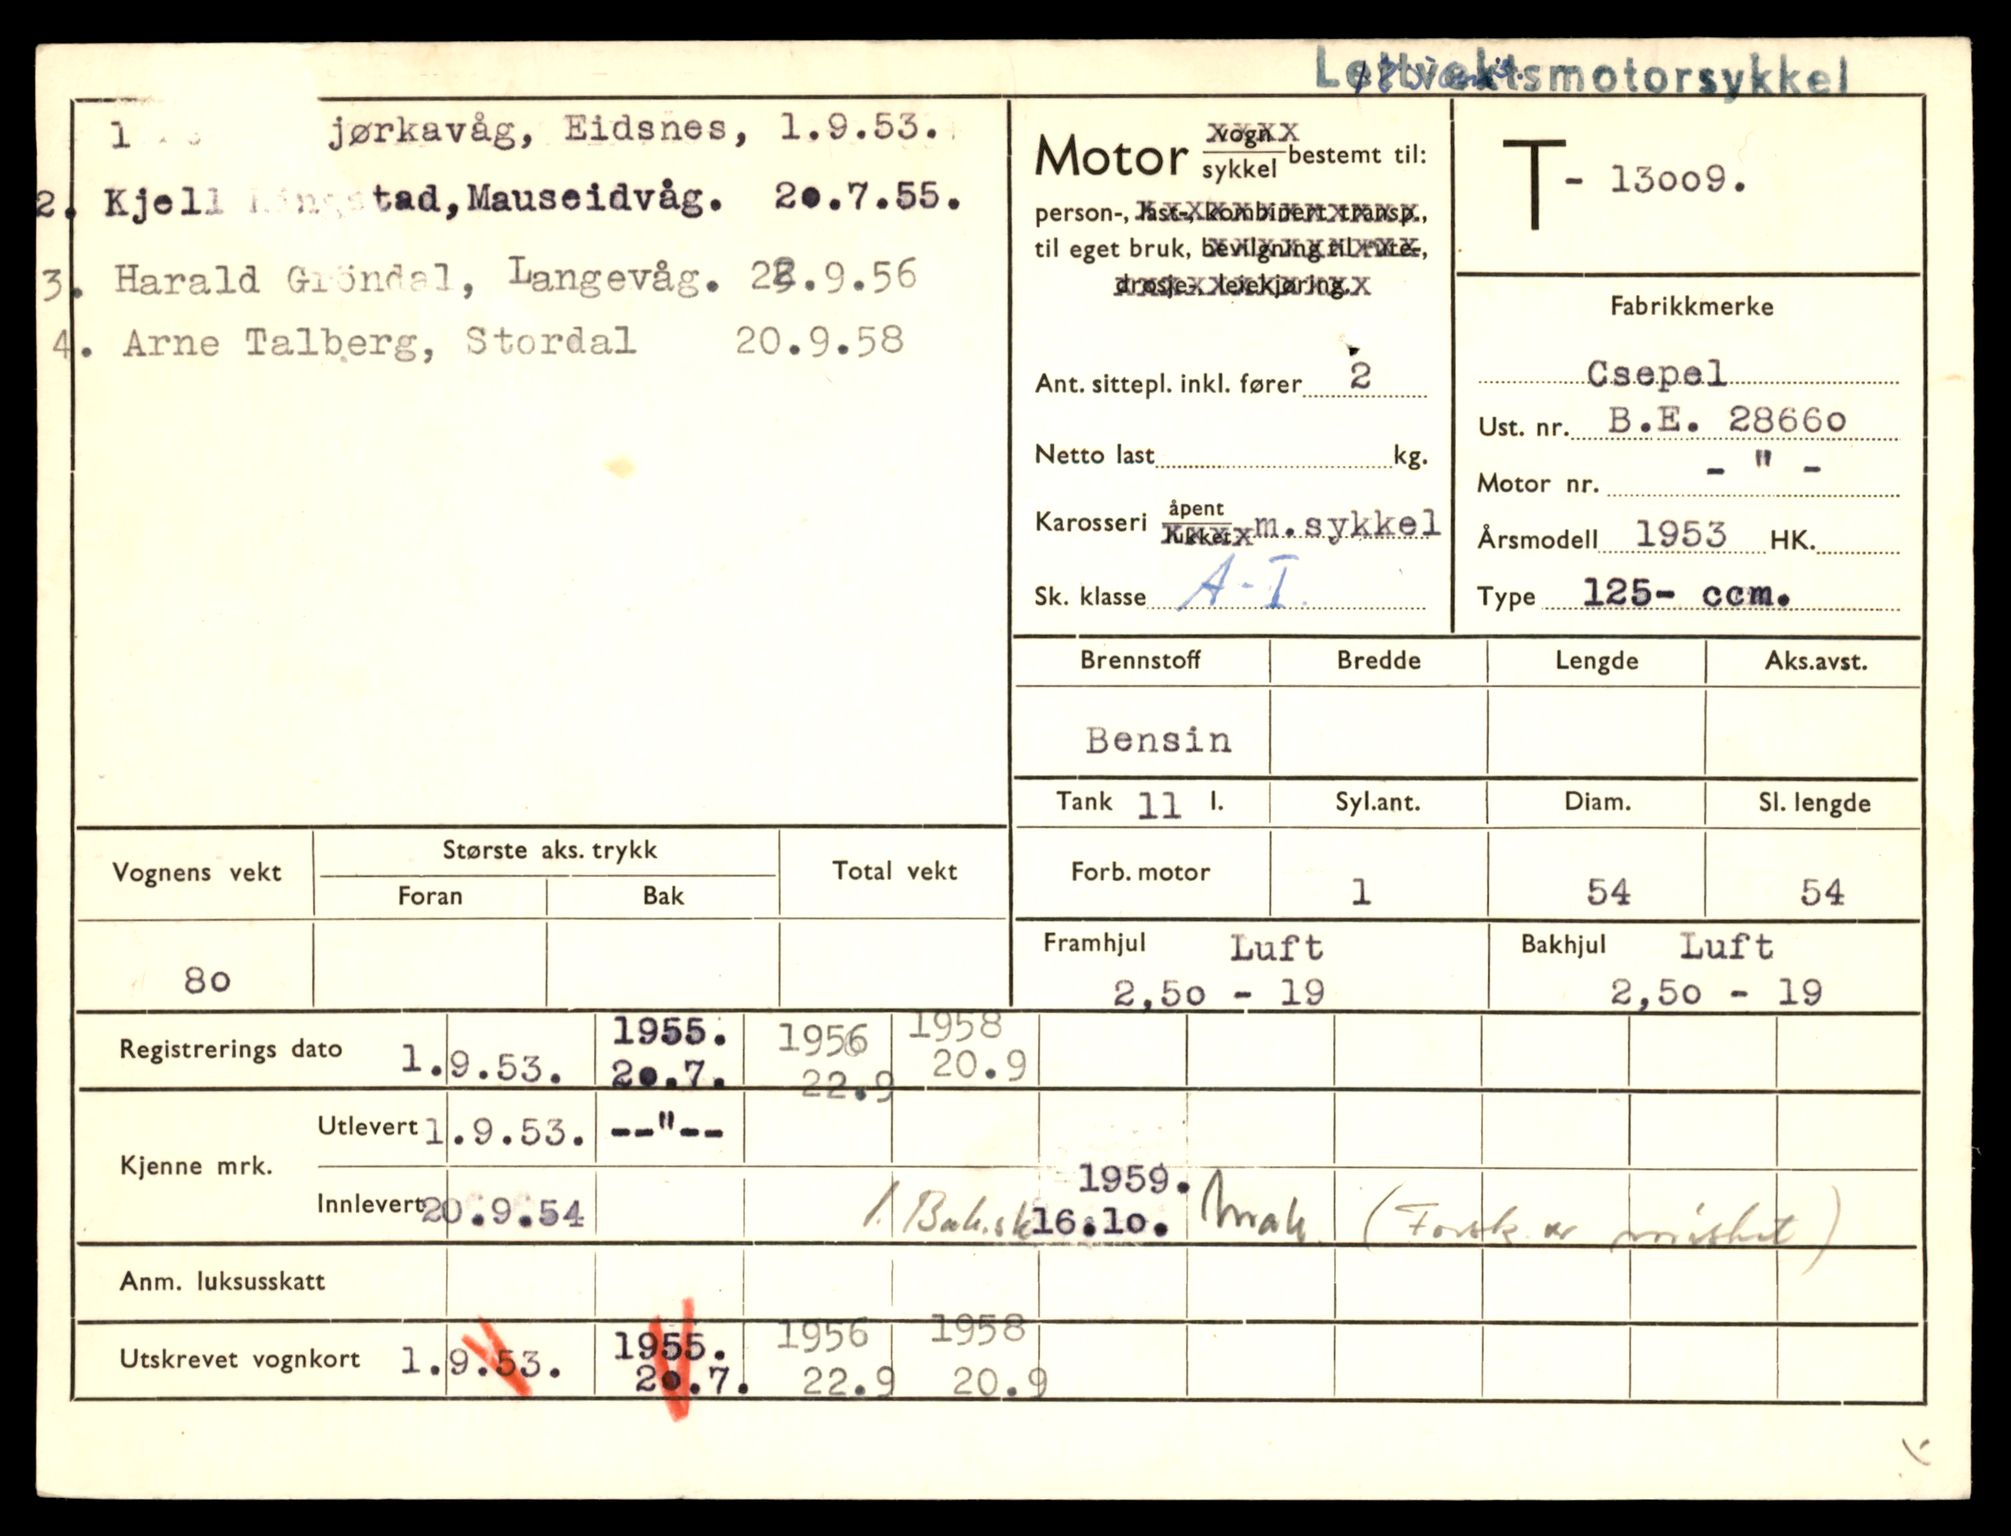 Lettvektsmotorsykkel
1 jørkavåg, Eidsnes, 1.9.53.
2. Kjell Ringstad, Mauseidvåg. 20.7.55.
3. Harald Gröndal, Langevåg. 22.9.56
4. Arne Talberg, Stordal 20.9.58
Motor vogn sykkel bestemt til:
person-, last-, kombinert transp.,
til eget bruk, bevilgning til rute-,
drosje-, leiekjøring.
Ant. sittepl. inkl. fører 2
Netto last kg.
Karosseri åpent lukket m.sykkel
Sk. klasse A-I.
T - 13009.
Fabrikkmerke
Csepel
Ust. nr. B.E. 28660
Motor nr. - " -
Årsmodell 1953 HK.
Type 125- ccm.
Brennstoff Bredde Lengde Aks.avst.
Bensin
Tank 11 l. Syl.ant. Diam. Sl. lengde
Forb. motor 1 54 54
Framhjul Luft Bakhjul Luft
2,50 - 19 2,50 - 19
Vognens vekt Største aks. trykk Total vekt
Foran Bak
80
1955. 1956 1958
Registrerings dato 1.9.53. 20.7. 22.9 20.9
Kjenne mrk.
Utlevert 1.9.53. --"--
1959.
Innlevert 20.9.54 1. Bak.sk 16.10. (Forsk. er mistet)
Anm. luksusskatt
1955. 1956 1958
Utskrevet vognkort 1.9.53. 20.7. 22.9 20.9